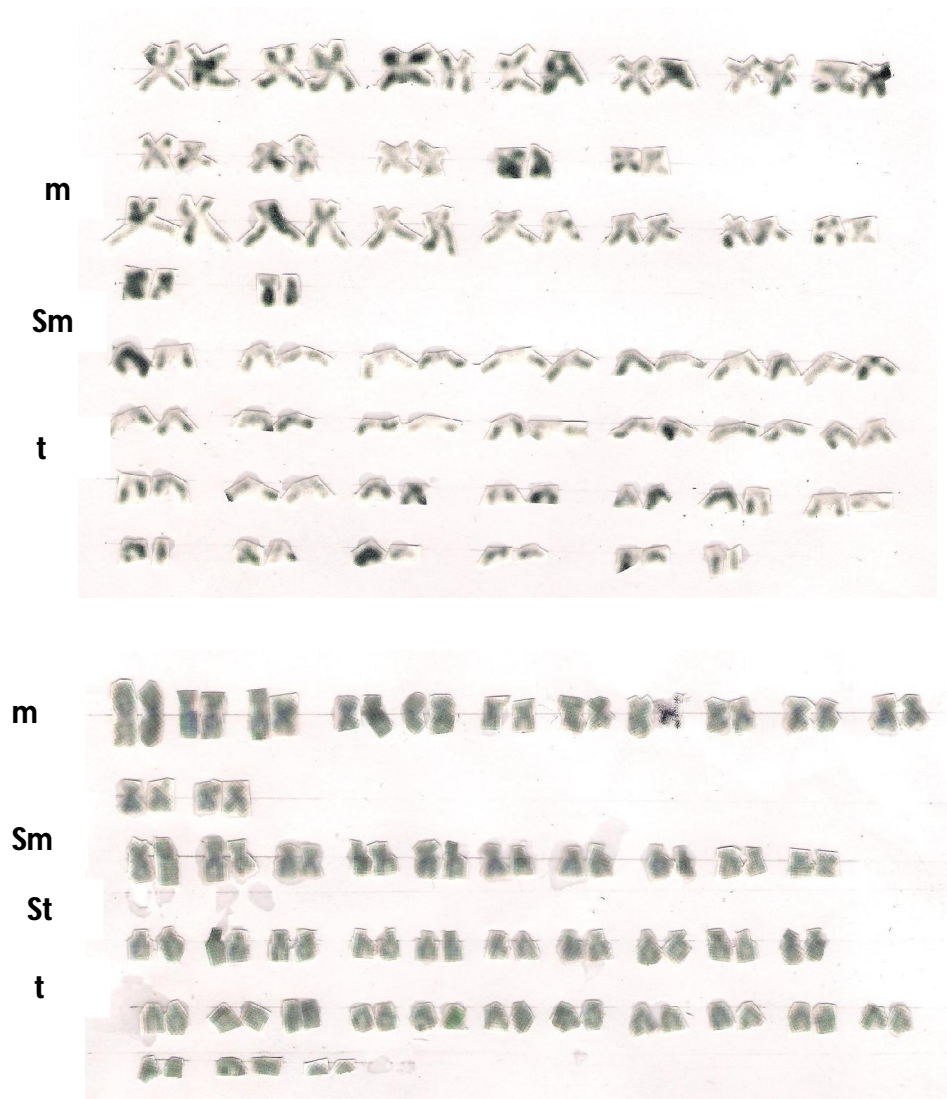 m
Sm
t
m
Sm
St
t